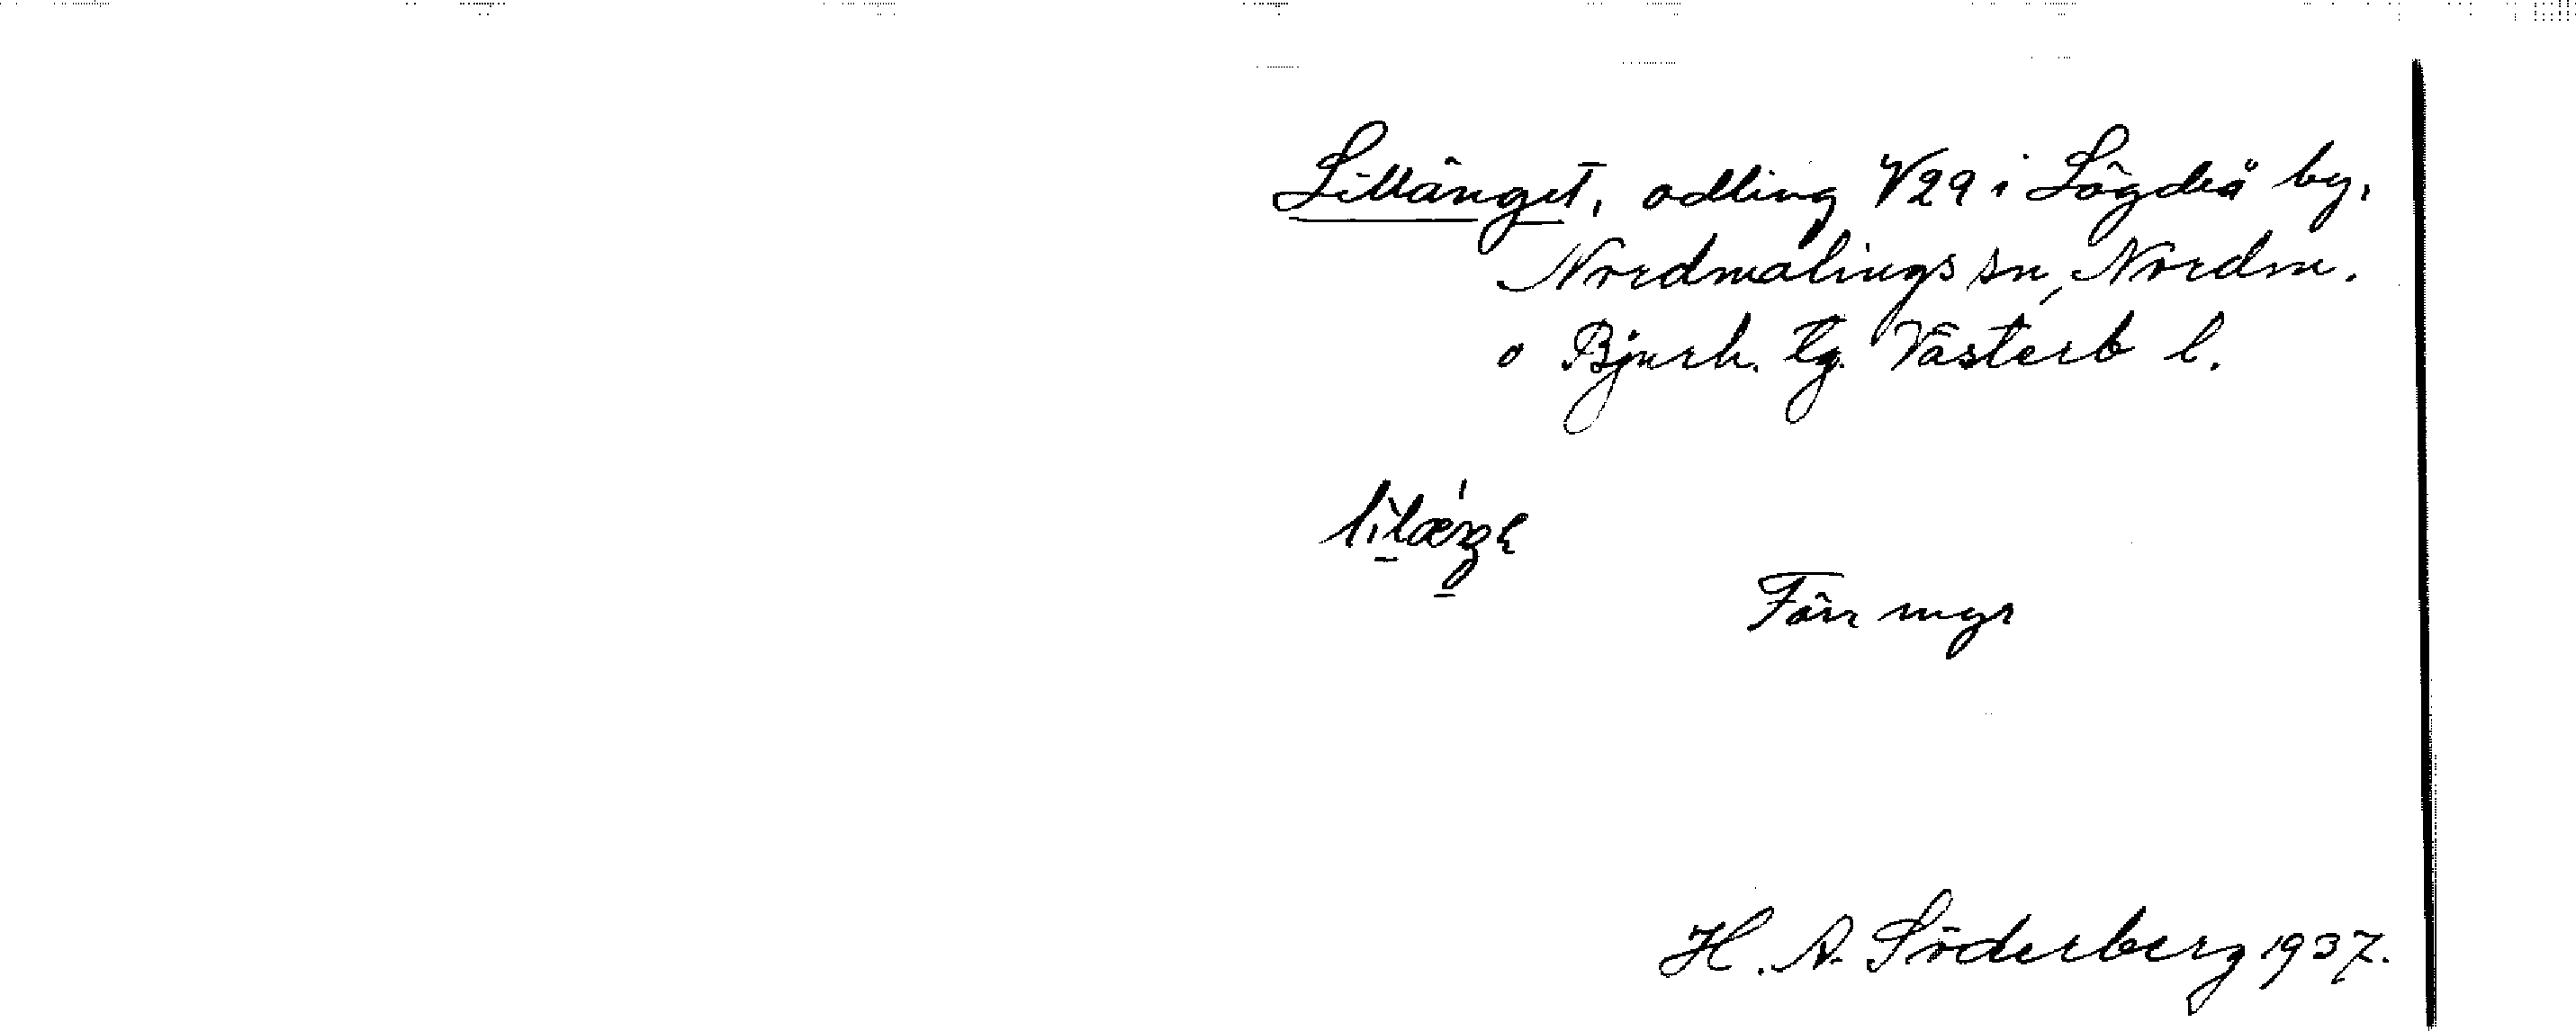 Lillänget, odling V29 i Lögdeå by,
Nordmalings sn, Nordm.
o Bjurh. tg. Västerb l.
Förr myr
H. A. Söderberg 1937.